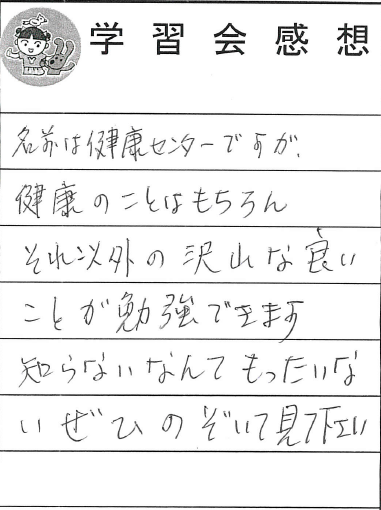 学習会感想
名前は健康センターですが、
健康のことはもちろん
それ以外の沢山な良い
ことが勉強できます
知らないなんてもったいな
いぜひのぞいて見て下さい